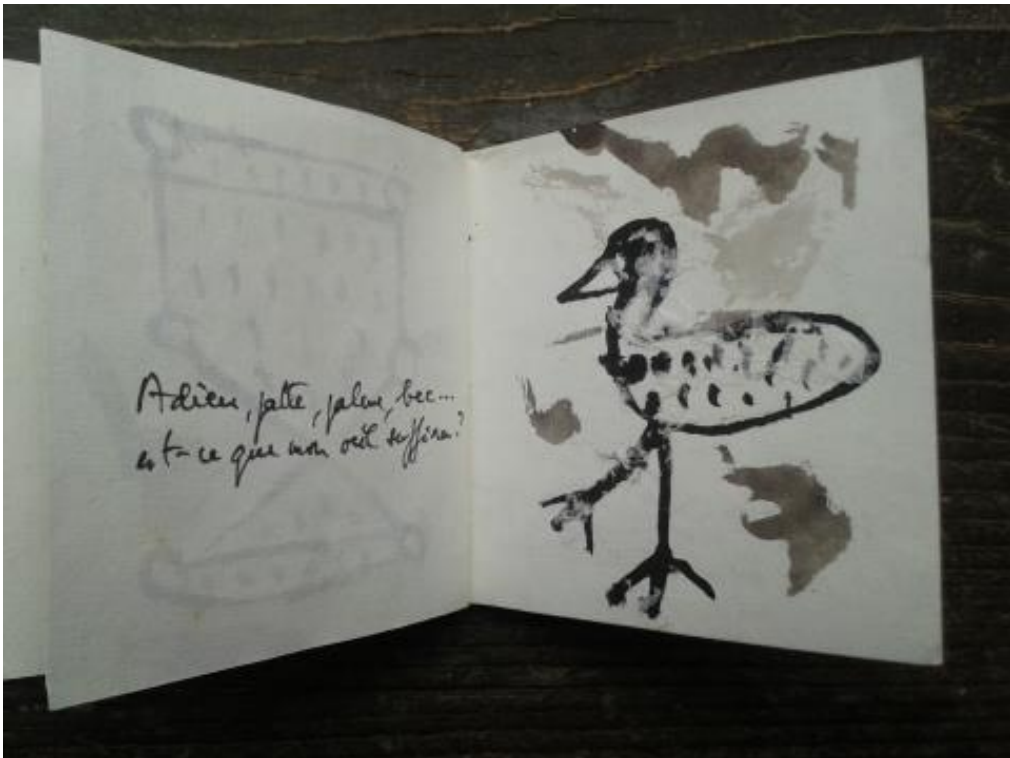 Adieu, patte, palme, bec...
est-ce que mon œil suffira?